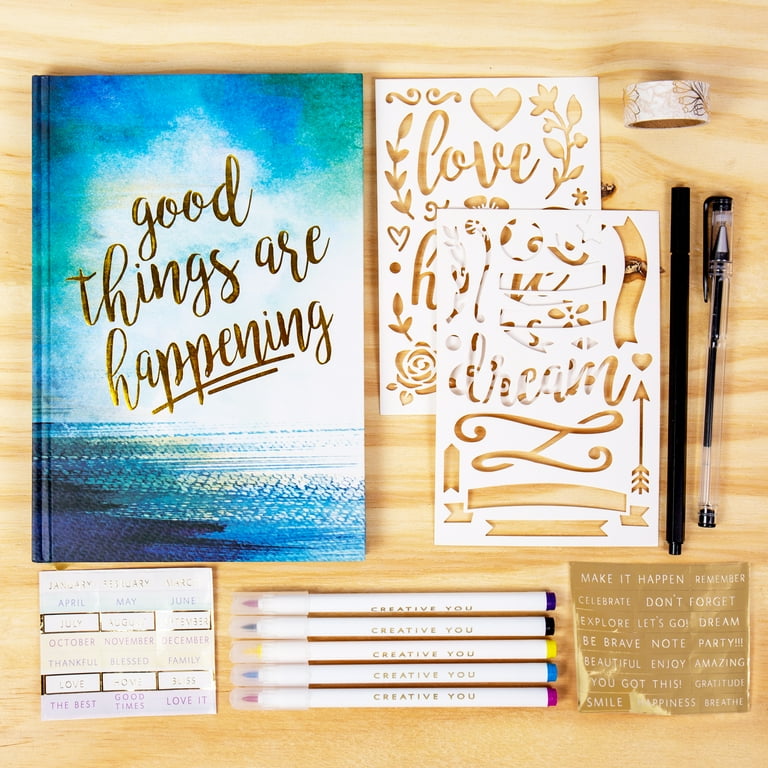 good
things are
happening
love
dream
JANUARY FEBRUARY MARCH
APRIL MAY JUNE
JULY AUGUST SEPTEMBER
OCTOBER NOVEMBER DECEMBER
THANKFUL BLESSED FAMILY
LOVE HOME BLISS
THE BEST GOOD TIMES LOVE IT
CREATIVE YOU
CREATIVE YOU
CREATIVE YOU
CREATIVE YOU
CREATIVE YOU
MAKE IT HAPPEN REMEMBER
CELEBRATE DON'T FORGET
EXPLORE LET'S GO! DREAM
BE BRAVE NOTE PARTY!!!
BEAUTIFUL ENJOY AMAZING
YOU GOT THIS! GRATITUDE
SMILE HAPPINESS BREATHE